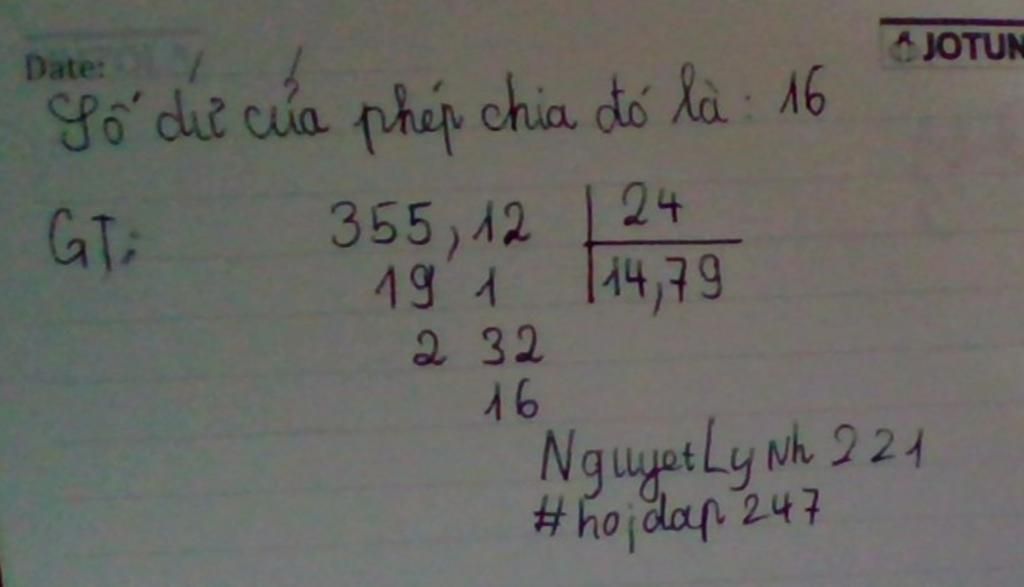 Date:
JOTUN
Số dư của phép chia đó là: 16
GT:
355,12 24
19 1 14,79
2 32
16
NguyetLyNh 221
#hojdap 247